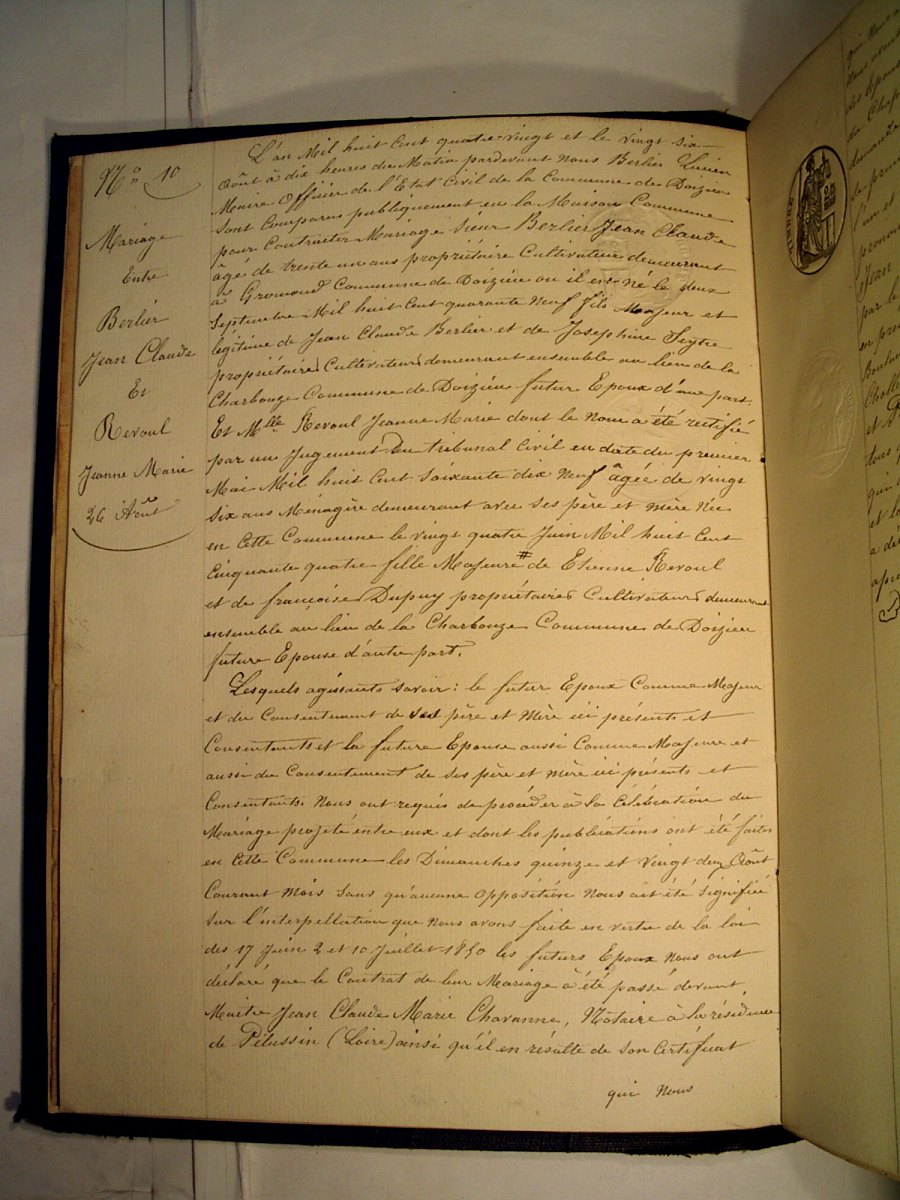 No 10
Mariage
Entre
Berlier
Jean Claude
Et
Revoul
Jeanne Marie
26 Août
L'an Mil huit Cent quatre-vingt et le vingt six
Août à dix heures du Matin pardevant nous Berlier Lucien
Maire Officier de l'Etat Civil de la Commune de Doizieu
sont Comparus publiquement en la Maison Commune
pour Contracter Mariage Sieur Berlier Jean Claude
âgé de trente un ans propriétaire Cultivateur demeurant
à Gromond Commune de Doizieu ou il est né le deux
Septembre Mil huit Cent quarante Neuf fils Majeur et
légitime de Jean Claude Berlier et de Joséphine Seytre
propriétaires Cultivateurs demeurant ensemble au lieu de la
Charbouze Commune de Doizieu futur Epoux d'une part.
Et Mlle Revoul Jeanne Marie dont le Nom a été rectifié
par un Jugement Du tribunal Civil en date du premier
Mai Mil huit Cent Soixante dix Neuf âgée de vingt
six ans Ménagère demeurant avec ses père et mère Née
en Cette Commune le vingt quatre Juin Mil huit Cent
Cinquante quatre fille Majeure # de Etienne Revoul
et de françoise Dupuy propriétaires Cultivateurs demeurant
ensemble au lieu de la Charbouze Commune de Doizieu
future Epouse d'autre part.
Lesquels agissants savoir : le futur Epoux Comme Majeur
et du Consentement de ses père et Mère ici présents et
Consentants et la future Epouse aussi Comme Majeure et
aussi du Consentement de Ses père et mère ici présents et
Consentants Nous ont requis de procéder à la Célébration du
Mariage projeté entre eux et dont les publications ont été faites
en Cette Commune les Dimanches quinze et Vingt deux Août
Courant Mois Sans qu'aucune Opposition Nous ait été Signifiée
Sur l'interpellation que Nous avons faite en vertu de la loi
des 17 Juin 2 et 10 Juillet 1850 les futurs Epoux Nous ont
déclaré que le Contrat de leur Mariage a été passé devant
Maître Jean Claude Marie Chavanne, Notaire à la résidence
de Pélussin (Loire) ainsi qu'il en résulte de Son Certificat
qui Nous
TIMBRE